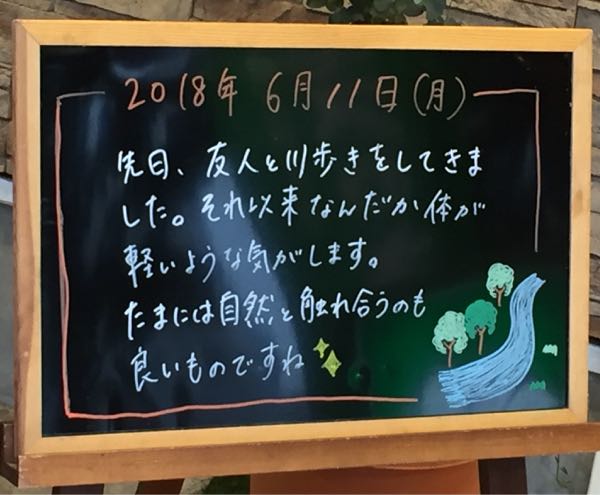 2018年 6月11日(月)
先日、友人と川歩きをしてきま
した。それ以来なんだか体が
軽いような気がします。
たまには自然と触れ合うのも
良いものですね